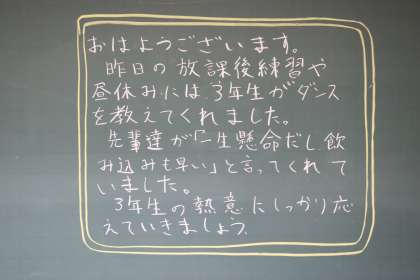 おはようございます。
昨日の放課後練習や
昼休みには、3年生がダンス
を教えてくれました。
先輩達が「一生懸命だし、飲
み込みも早い」と言ってくれて
いました。
3年生の熱意にしっかり応
えていきましょう。